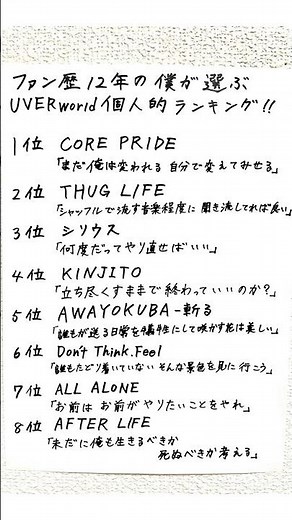 ファン歴12年の僕が選ぶ
UVERworld個人的ランキング!!
1位 CORE PRIDE
「まだ俺は変われる 自分で変えてみせる」
2位 THUG LIFE
「シャッフルで流す音楽程度に 聞き流してれば良い」
3位 シリウス
「何度だってやり直せばいい」
4位 KINJITO
「立ち尽くすままで終わっていいのか?」
5位 AWAYOKUBA-斬る
「誰もが送る日常を犠牲にして咲かす花は美しい」
6位 Don't Think.Feel
「誰もたどり着いていない そんな景色を見に行こう」
7位 ALL ALONE
「お前は お前がやりたいことをやれ」
8位 AFTER LIFE
「未だに俺も生きるべきか
死ぬべきか考える」